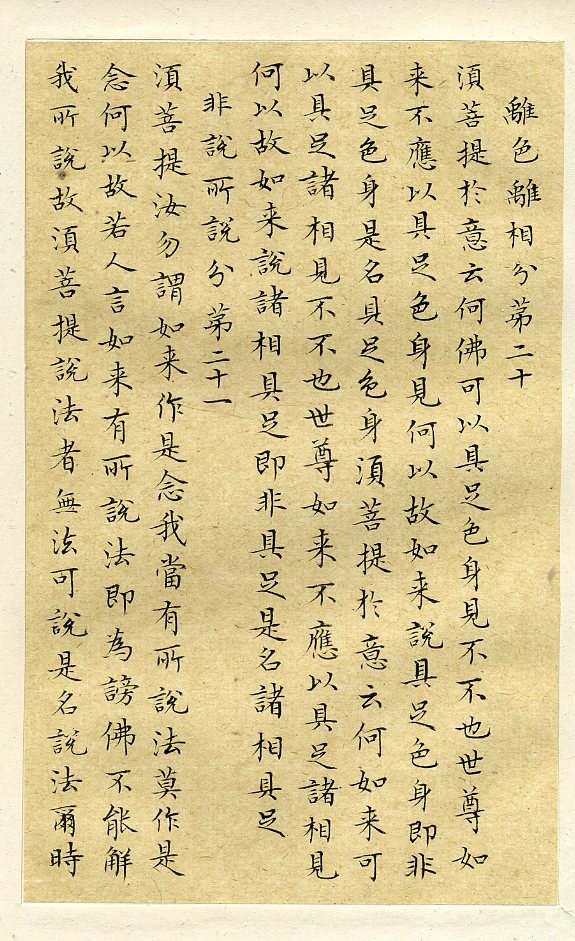 離色離相分第二十
須菩提於意云何佛可以具足色身見不不也世尊如
来不應以具足色身見何以故如来說具足色身即非
具足色身是名具足色身須菩提於意云何如来可
以具足諸相見不不也世尊如来不應以具足諸相見
何以故如来說諸相具足即非具足是名諸相具足
非說所說分第二十一
須菩提汝勿謂如来作是念我當有所說法莫作是
念何以故若人言如来有所說法即為謗佛不能解
我所說故須菩提說法者無法可說是名說法爾時